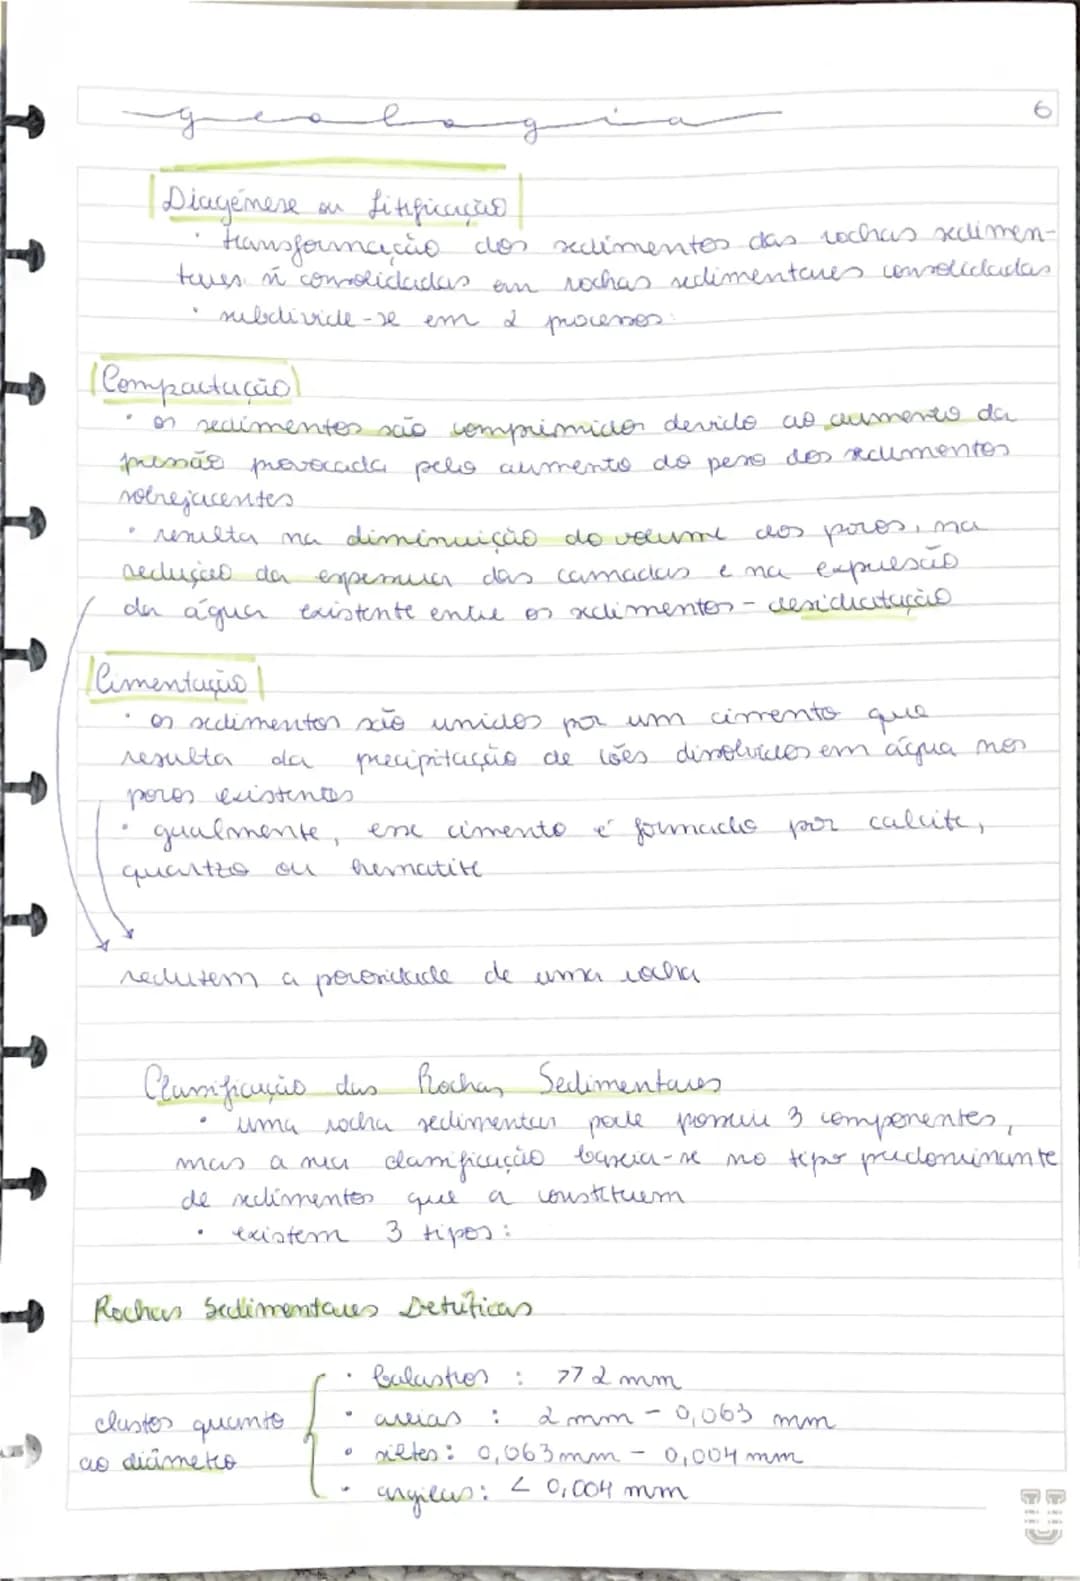 geologia
6
Diagénese ou Litificação
· transformação dos sedimentos das rochas sedimen-
tares ñ consolidadas em rochas sedimentares consolidadas
· subdivide-se em 2 processos:
Compactação
· os sedimentos são comprimidos devido ao aumento da
pressão provocada pelo aumento do peso dos sedimentos
sobrejacentes
· resulta na diminuição do volume dos poros, na
redução da espessura das camadas e na expulsão
da água existente entre os sedimentos - desidratação
Cimentação
· os sedimentos são unidos por um cimento que
resulta da precipitação de iões dissolvidos em água nos
poros existentes
· gualmente, esse cimento é formado por calcite,
quartzo ou hematite
reduzem a porosidade de uma rocha
Classificação das Rochas Sedimentares
· uma rocha sedimentar pode possuir 3 componentes,
mas a sua classificação baseia-se no tipo predominante
de sedimentos que a constituem
· existem 3 tipos:
Rochas Sedimentares Detríticas
clastos quanto
ao diâmetro
· balastros : >> 2 mm
· areias : 2 mm - 0,063 mm
· siltes : 0,063 mm - 0,004 mm
· argilas : < 0,004 mm